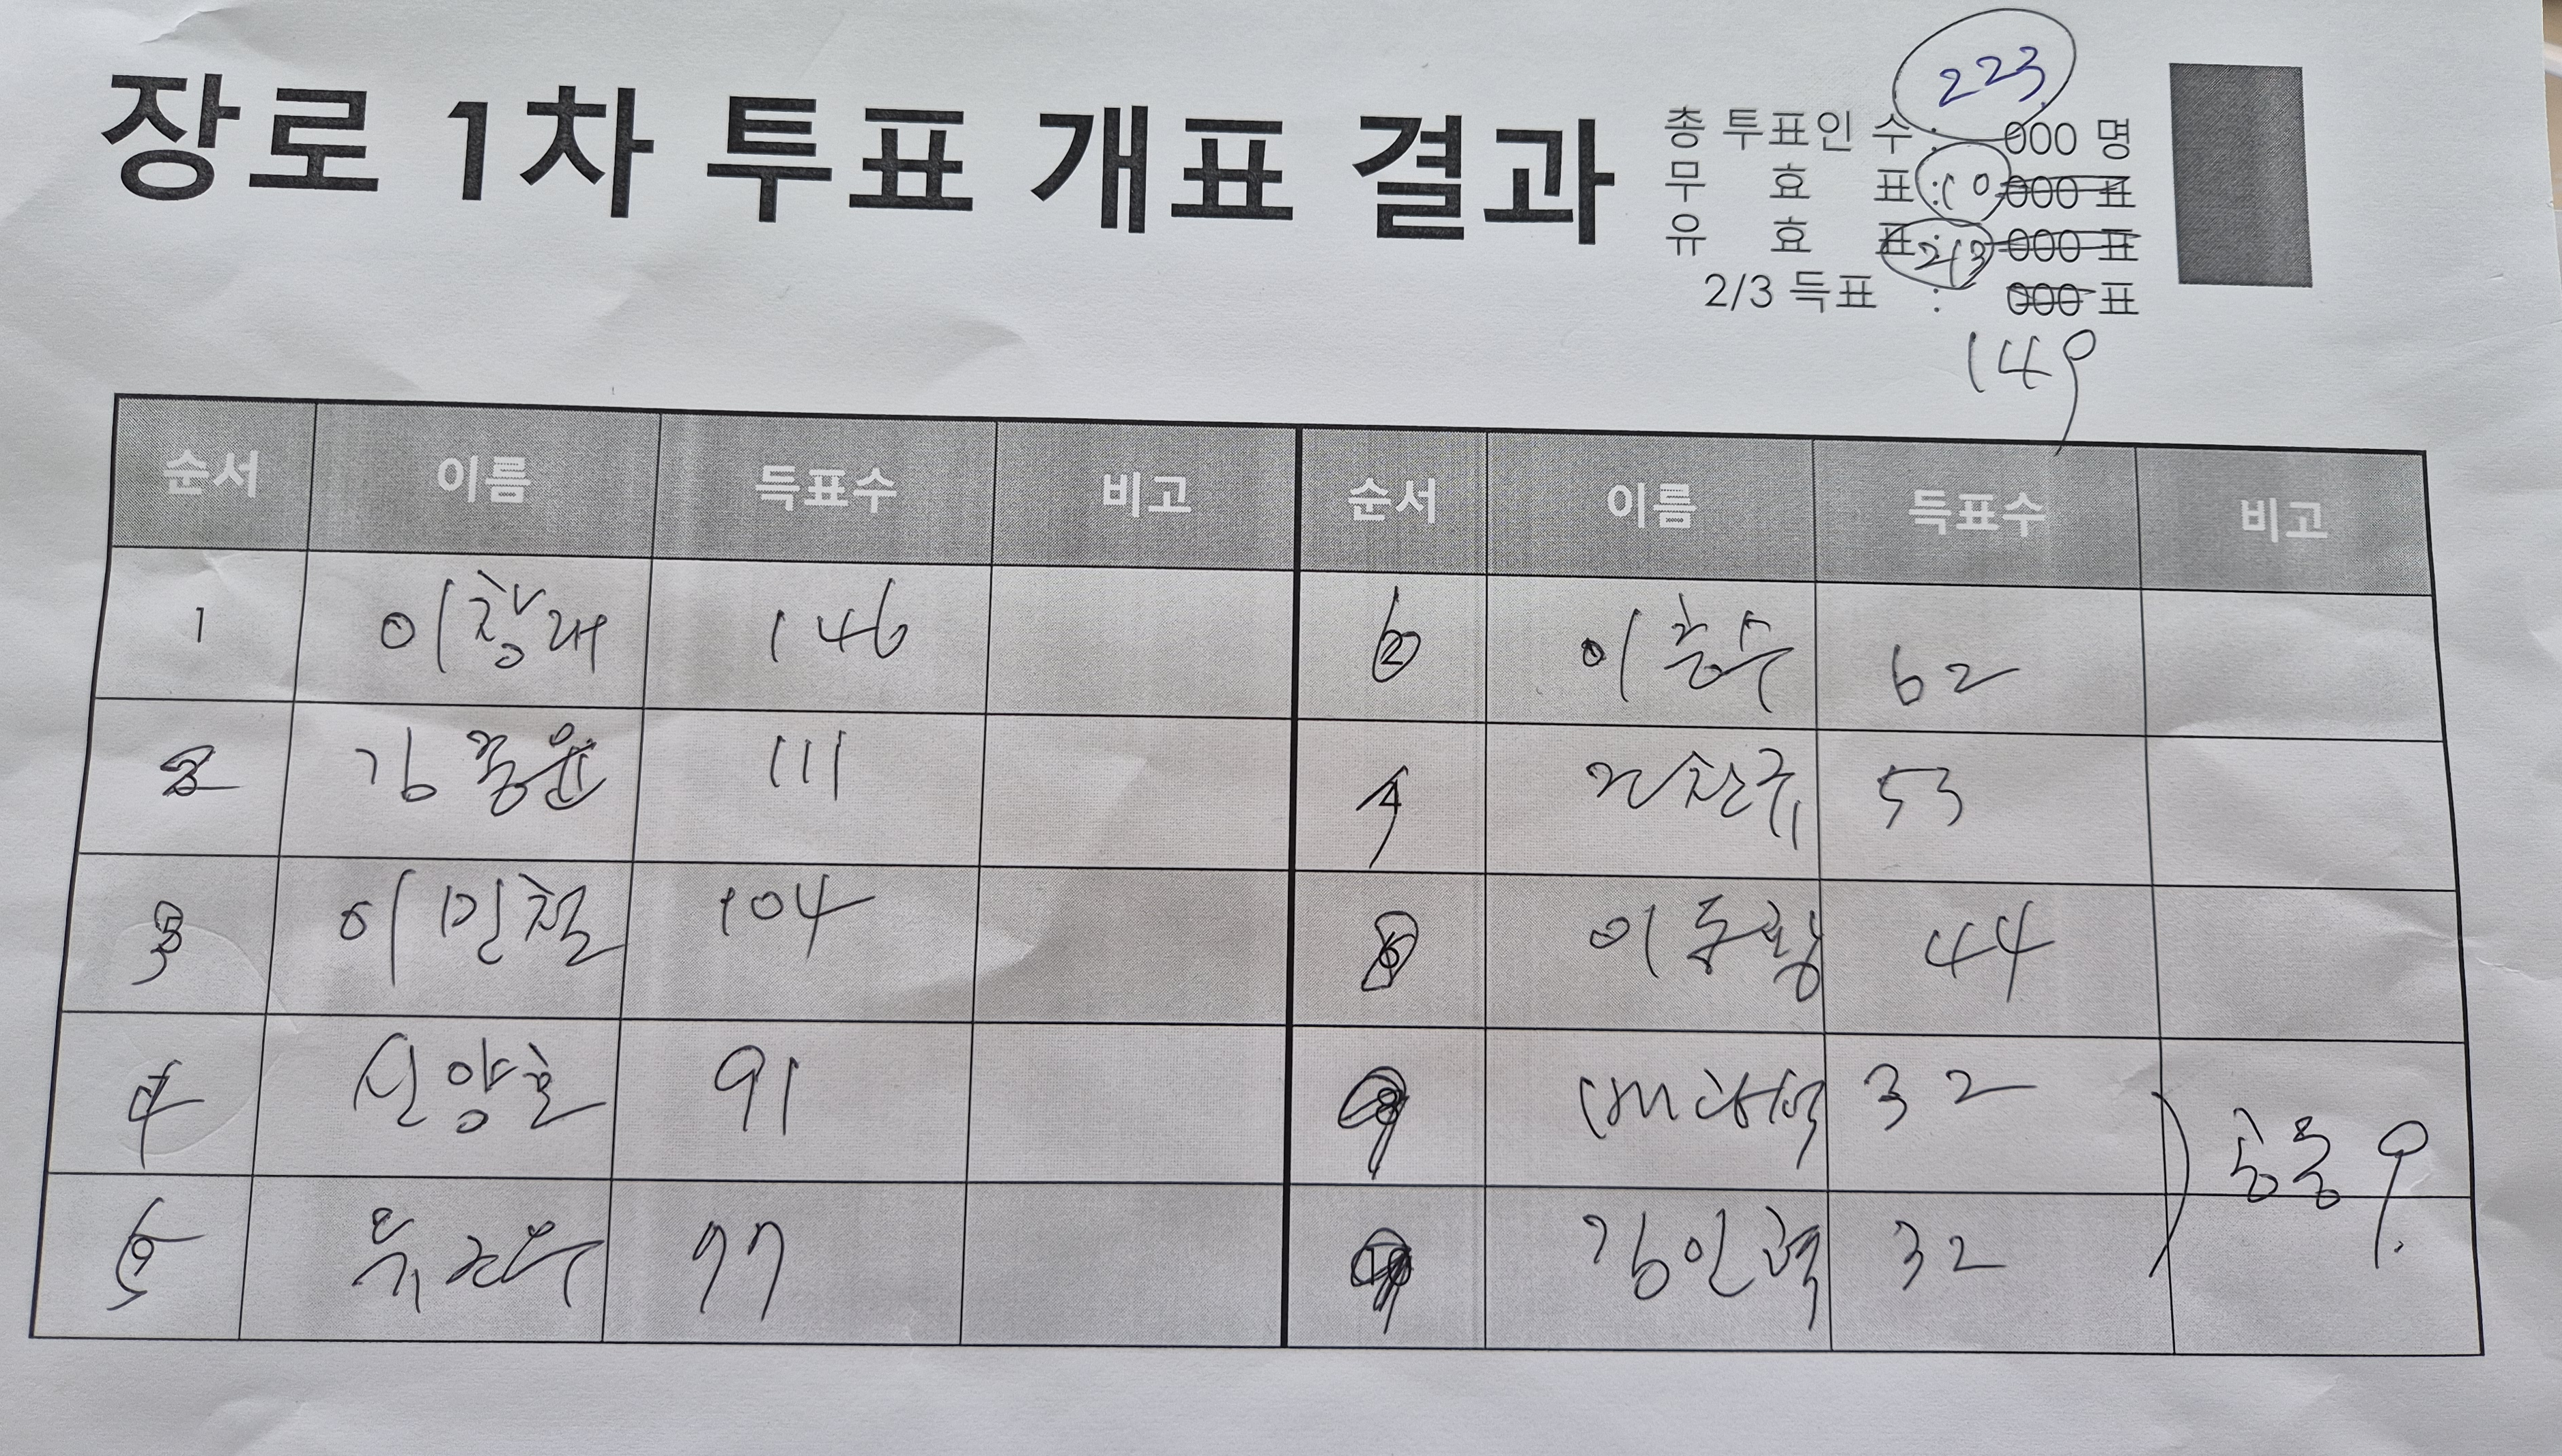 장로 1차 투표 개표 결과
223
총 투표인 수 : 000 명
무 효 표 : 10 000 표
유 효 표 : 213 000 표
2/3 득표 : 000 표
149
순서 이름 득표수 비고 순서 이름 득표수 비고
1 이창래 146 6 62
2 김종윤 111 7 53
3 이민철 104 8 이동광 44
4 신양호 91 9 32
5 77 9 김인혁 32
공동 9.